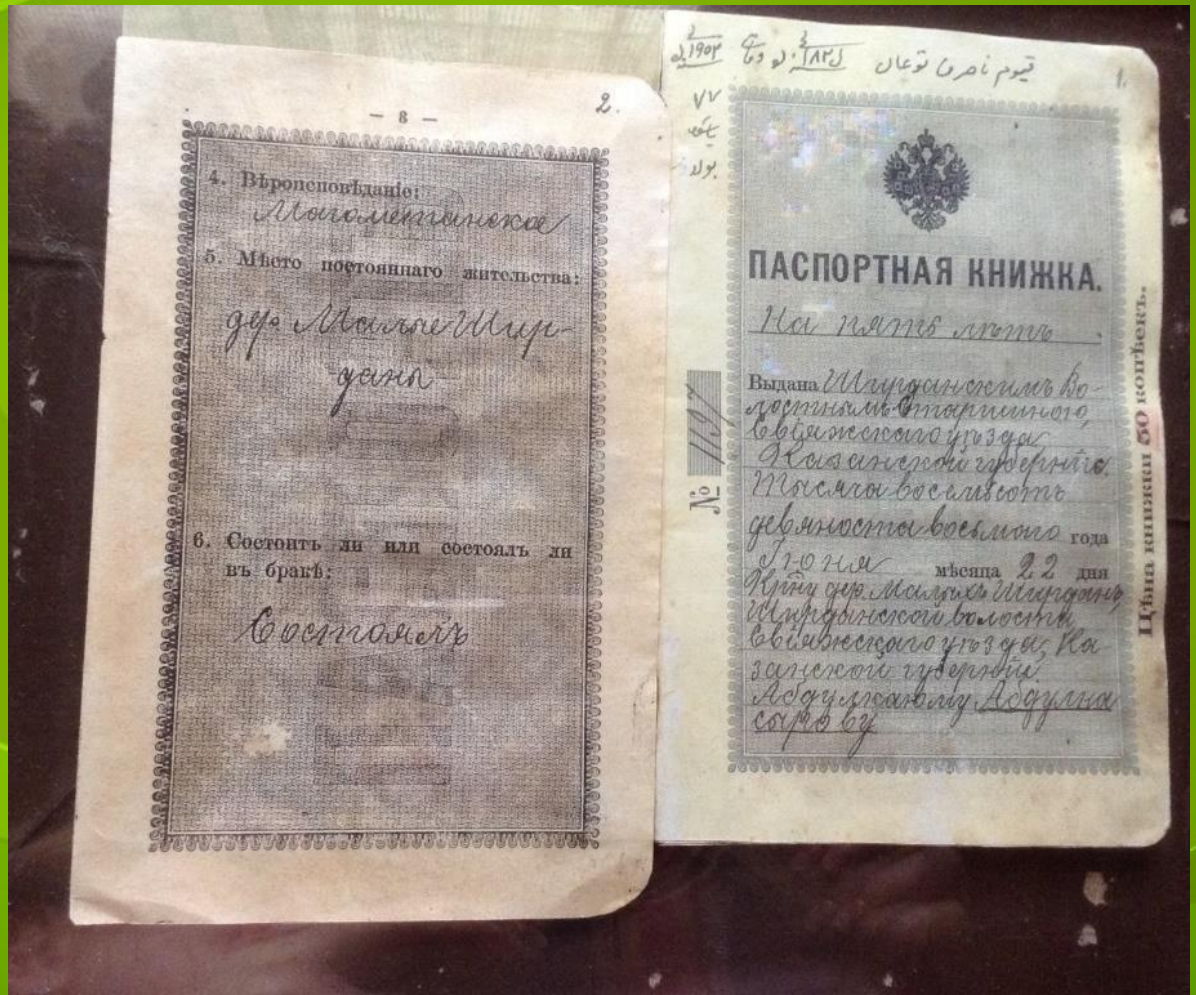 2.
— 3 —
4. Вѣроисповѣданіе:
Магометанское
5. Мѣсто постояннаго жительства:
дер. Малые Шир-
даны
6. Состоитъ ли или состоялъ ли
въ бракѣ:
Состоялъ
1.
قيوم ناصرى توغان
٧٧
ПАСПОРТНАЯ КНИЖКА.
На пять лѣтъ.
Выдана Ширданскимъ Во-
лостнымъ Старшиною,
Свіяжскаго уѣзда,
Казанской губерніи.
Тысяча восемьсотъ
девяноста восьмого года
Іюня мѣсяца 22 дня
Кр-ну дер. Малыхъ Ширданъ,
Ширданской волости
Свіяжскаго уѣзда, Ка-
занской губерніи
Абдулкаюму Абдулна
сырову
№ 1197
Цѣна книжки 50 копѣекъ.